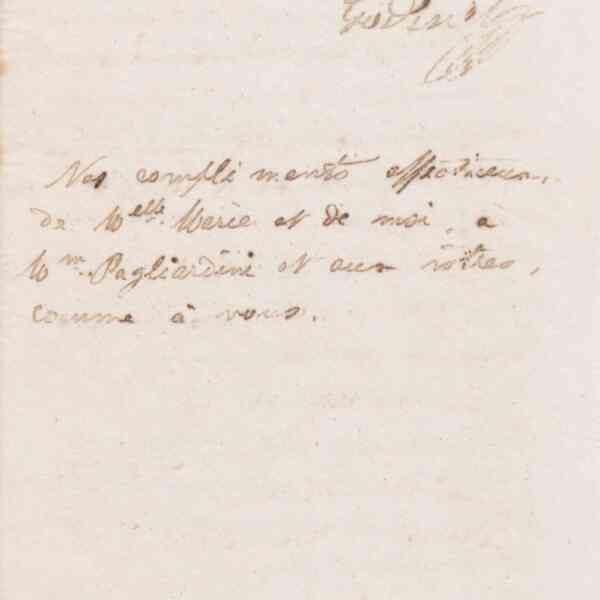 Godin
Nos compliments affectueux,
de Melle Marie et de moi, à
Mm Pagliardini et aux vôtres,
comme à vous.